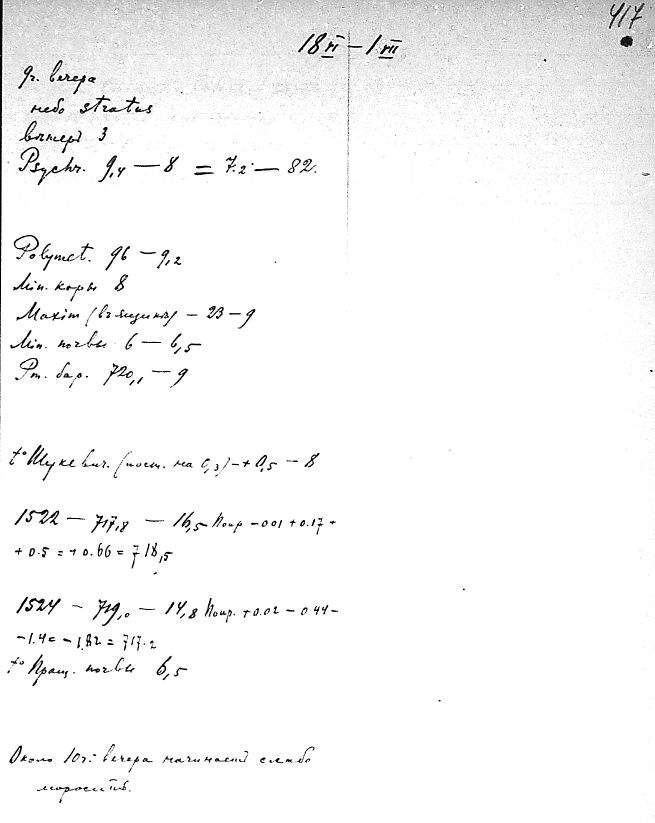 417
18 VI — 1 VII
9 г. вечера
небо stratus
вѣтеръ 3
Psychr. 9,4 — 8 = 7.2 — 82.
Polymet. 96 — 9,2
Min. коры 8
Maxim (въ ящикѣ) — 23 — 9
Min. почвы 6 — 6,5
Рт. бар. 720,1 — 9
t° Шукевич. (пост. на 0,3) — + 0,5 — 8
1522 — 717,8 — 16,5 Попр — 001 + 0.17 +
+ 0.5 = + 0.66 = 718,5
1524 — 719,0 — 14,8 Попр. + 0.02 — 0.44 —
— 1.40 — 1.82 = 717.2
t° Пращ. почвы 6,5
Около 10 г. вечера начинает слабо
моросить.